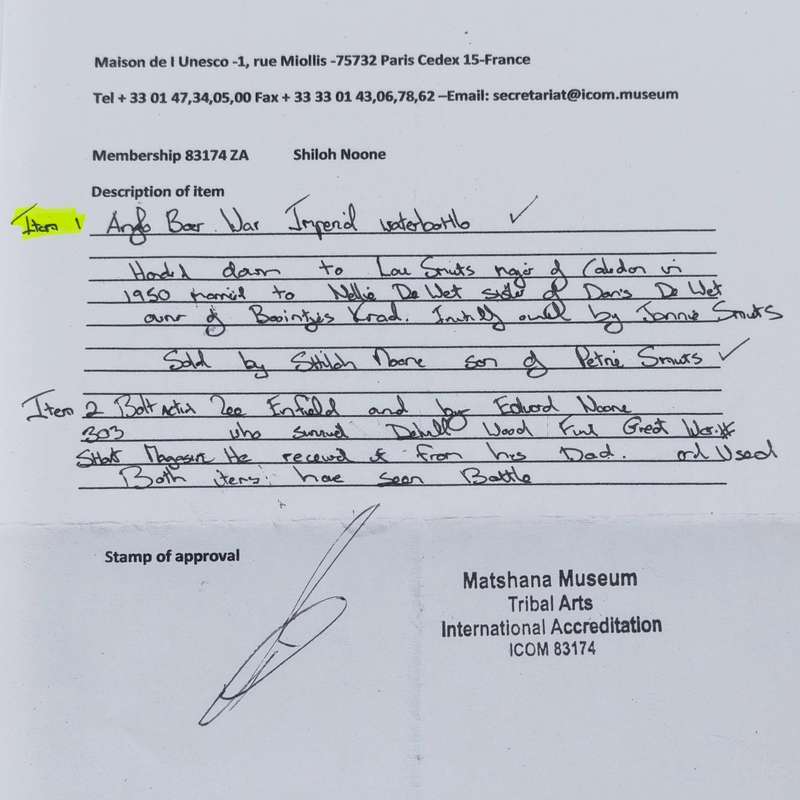 Maison de l Unesco -1, rue Miollis -75732 Paris Cedex 15-France
Tel + 33 01 47,34,05,00 Fax + 33 33 01 43,06,78,62 –Email: secretariat@icom.museum
Membership 83174 ZA Shiloh Noone
Description of item
Item 1 Anglo Boer War Imperial waterbottle ✓
Handed down to Lou Smuts major of Caledon in
1950 married to Nellie De Wet sister of Danis De Wet
owner of Kraal. owned by Jannie Smuts
Sold by Shiloh Noone son of Petrie Smuts ✓
Item 2 Bolt Action Lee Enfield and by Edward Noone
303 who survived Delville Wood First Great War
Short Magazine He received it from his Dad. and Used
Both items have seen Battle
Stamp of approval
Matshana Museum
Tribal Arts
International Accreditation
ICOM 83174